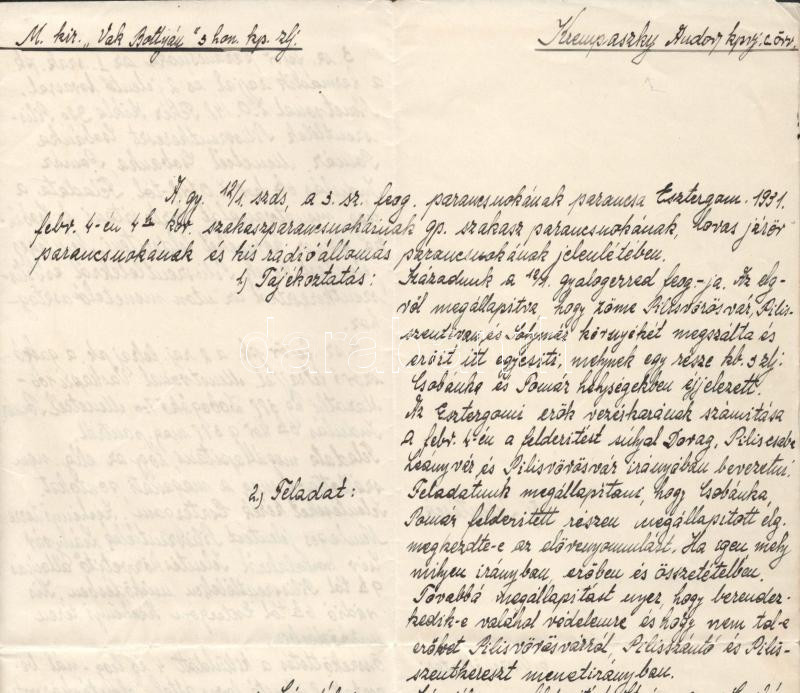 M. kir. „Vak Bottyán” 3 hon. kp. zlj.
Krempaszky Andor kprj. c. örv.
A. gy. 12/1. szds, a 3. sz. feog. parancsnokának parancsa Esztergom. 1931.
febr. 4-én 4 h kor, szakaszparancsnokainak gp. szakasz parancsnokának, lovas járör
parancsnokának és kis rádióállomás parancsnokának jelenlétében.
1) Tájékoztatás:
Századunk a 12/1. gyalogezred feog.-ja. Az elg-
ről megállapítva, hogy zöme Pilisvörösvár, Pilis-
szentiván, és Solymár környékét megszállta és
erőit itt egyesíti, melynek egy része kb. 3 zlj.
Csobánka és Pomáz helységekben éjjelezett.
Az Esztergomi erők vezérkarának számítása
a febr. 4-én a felderítést súlyal Dorog, Piliscsaba
Leányvár és Pilisvörösvár irányában bevezetni.
2) Feladat:
Feladatunk megállapítani, hogy Csobánka,
Pomáz felderített részen megállapított elg.
megkezdte-e az előrenyomulást. Ha igen mely
milyen irányban, erőben és összetételben.
Továbbá megállapítást nyer, hogy berendez-
kedik-e valahol védelemre és hogy nem tol-e
erőket Pilisvörösvárról, Pilisszántó és Pilis-
szentkereszt menetirányban.